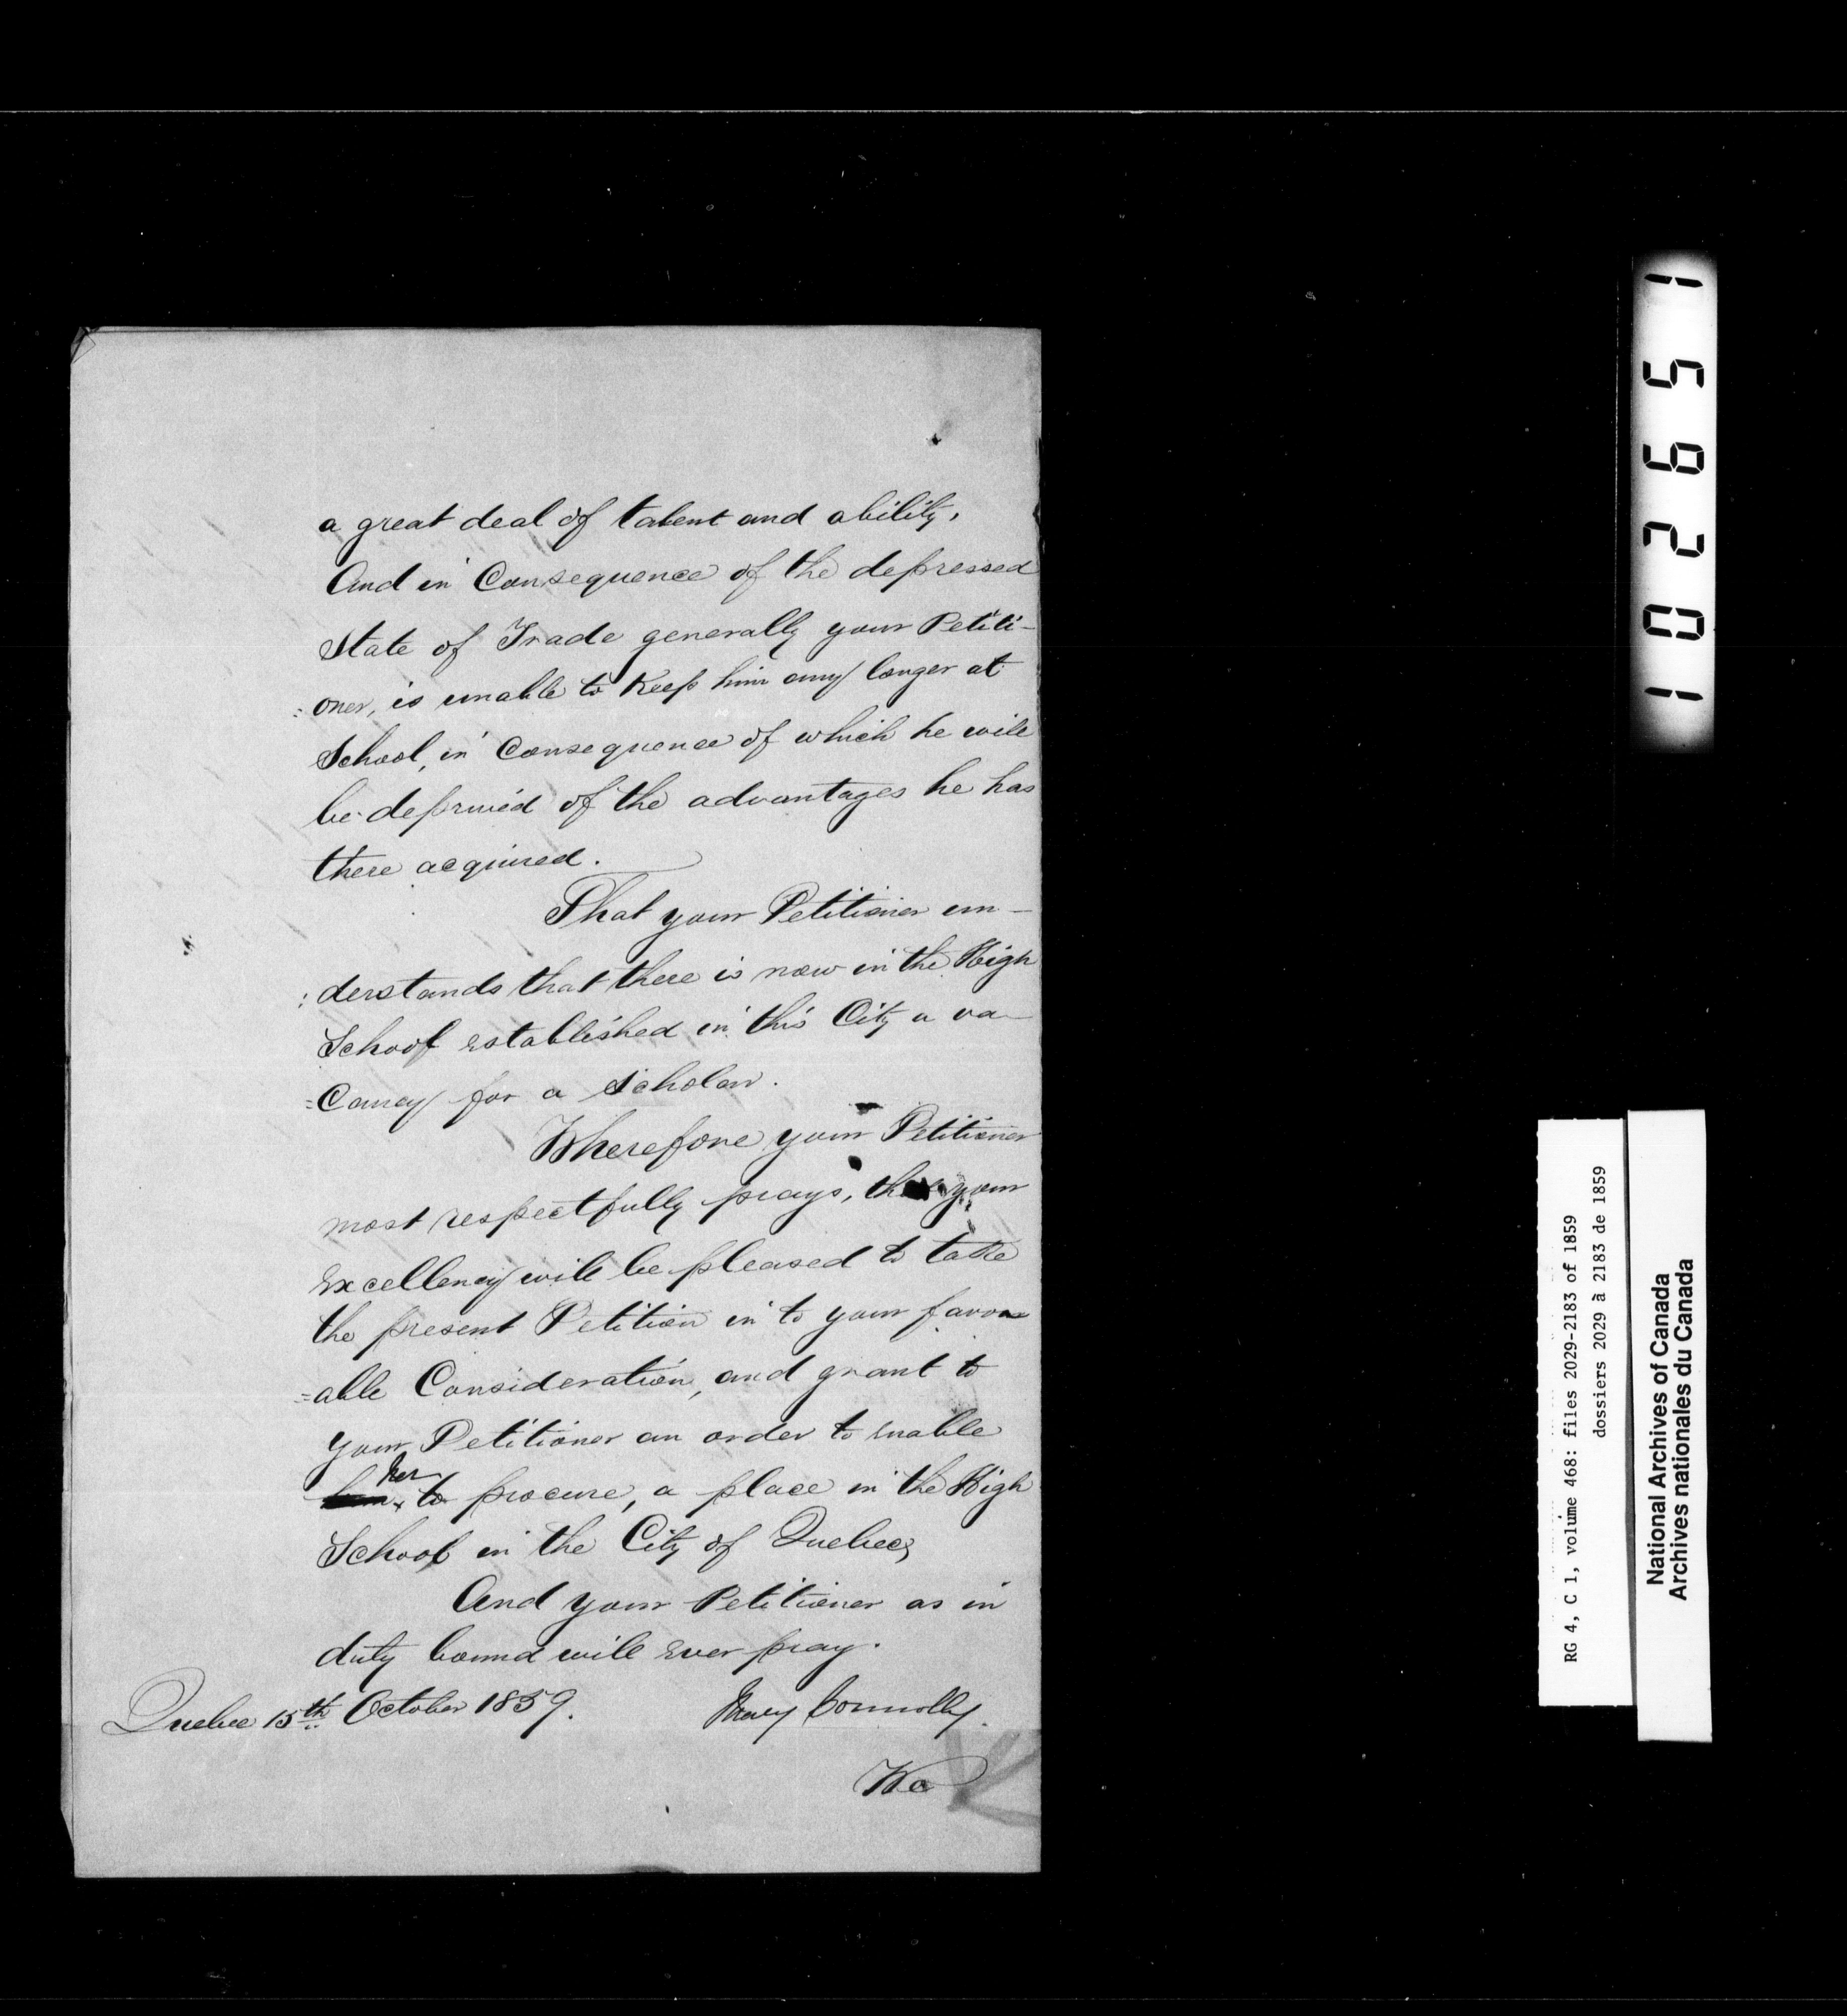 a great deal of talent and ability,
And in Consequence of the depressed
State of Trade generally your Petiti-
:oner, is unable to Keep him any longer at
School, in Consequence of which he will
be deprived of the advantages he has
there acquired.
That your Petitioner un-
:derstands that there is now in the High
School established in this City a va-
=cancy for a scholar.
Wherefore your Petitioner
most respectfully prays, that your
Excellency will be pleased to take
the present Petition in to your favor
=able Consideration, and grant to
your Petitioner an order to enable
her
to procure, a place in the High
School in the City of Quebec,
And your Petitioner as in
duty bound will ever pray.
Quebec 15th October 1859.
Mary Connolly.
102651
RG 4, C 1, volume 468: files 2029-2183 of 1859
dossiers 2029 à 2183 de 1859
National Archives of Canada
Archives nationales du Canada